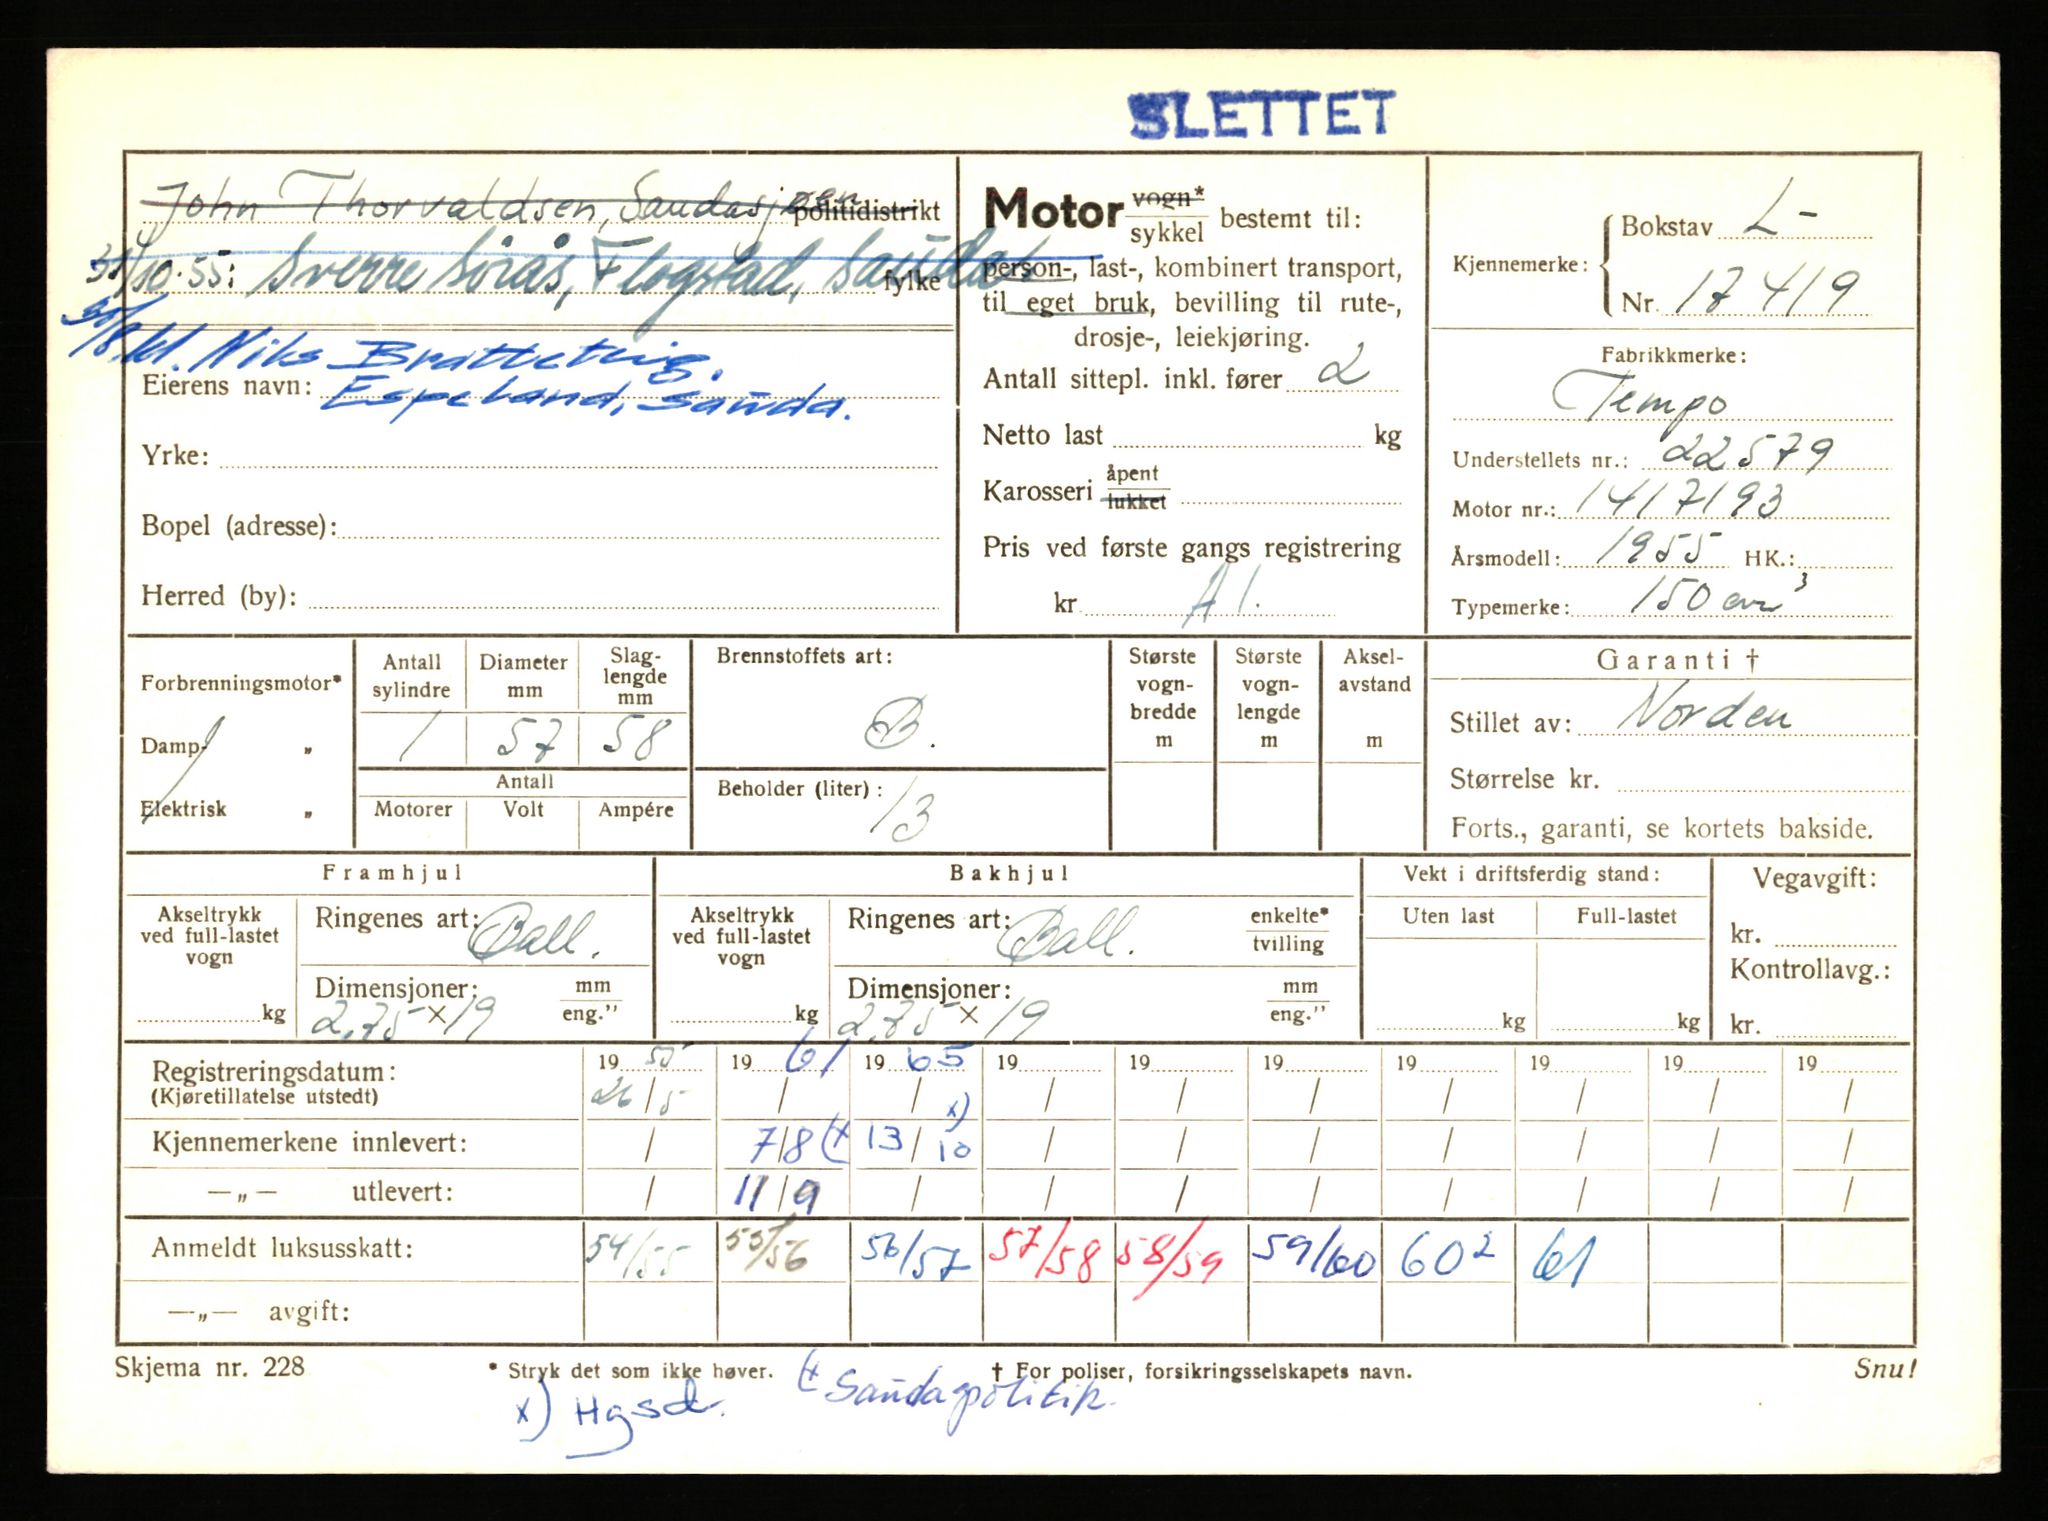 SLETTET
John Thorvaldsen, Saudasjøen politidistrikt
31/10-55: Sverre Sørås, Flogstad, Sauda fylke
Nils Brattetveig.
Eierens navn: Espeland, Sauda.
Yrke:
Bopel (adresse):
Herred (by):
Motor vogn* / sykkel bestemt til:
person-, last-, kombinert transport,
til eget bruk, bevilling til rute-,
drosje-, leiekjøring.
Antall sittepl. inkl. fører 2
Netto last kg
Karosseri åpent / lukket
Pris ved første gangs registrering
kr A 1.
Kjennemerke: Bokstav L-
Nr. 17419
Fabrikkmerke:
Tempo
Understellets nr.: 22579
Motor nr.: 1417193
Årsmodell: 1955 HK.:
Typemerke: 150 cm³
Forbrenningsmotor*
Damp- „
Elektrisk „
Antall sylindre Diameter mm Slag-lengde mm
1 57 58
Antall
Motorer Volt Ampére
Brennstoffets art:
B.
Beholder (liter): 13
Største vogn-bredde m
Største vogn-lengde m
Aksel-avstand m
Garanti †
Stillet av: Norden
Størrelse kr.
Forts., garanti, se kortets bakside.
Framhjul
Akseltrykk ved full-lastet vogn kg
Ringenes art: Ball.
Dimensjoner: mm / eng."
2,75 × 19
Bakhjul
Akseltrykk ved full-lastet vogn kg
Ringenes art: Ball. enkelte* / tvilling
Dimensjoner: mm / eng."
2,75 × 19
Vekt i driftsferdig stand:
Uten last Full-lastet
kg kg
Vegavgift:
kr.
Kontrollavg.:
kr.
Registreringsdatum: 19 55 19 61 19 65 19 19 19 19 19 19 19
(Kjøretillatelse utstedt) 26/5 / / / / / / / / /
Kjennemerkene innlevert: / 7/8 (+ 13/10 x) / / / / / / /
—„— utlevert: / 11/9 / / / / / / / /
Anmeldt luksusskatt: 54/55 55/56 56/57 57/58 58/59 59/60 60² 61
—„— avgift:
Skjema nr. 228 * Stryk det som ikke høver. † For poliser, forsikringsselskapets navn. Snu!
x) Hgsd. (+ Saudapolitik.